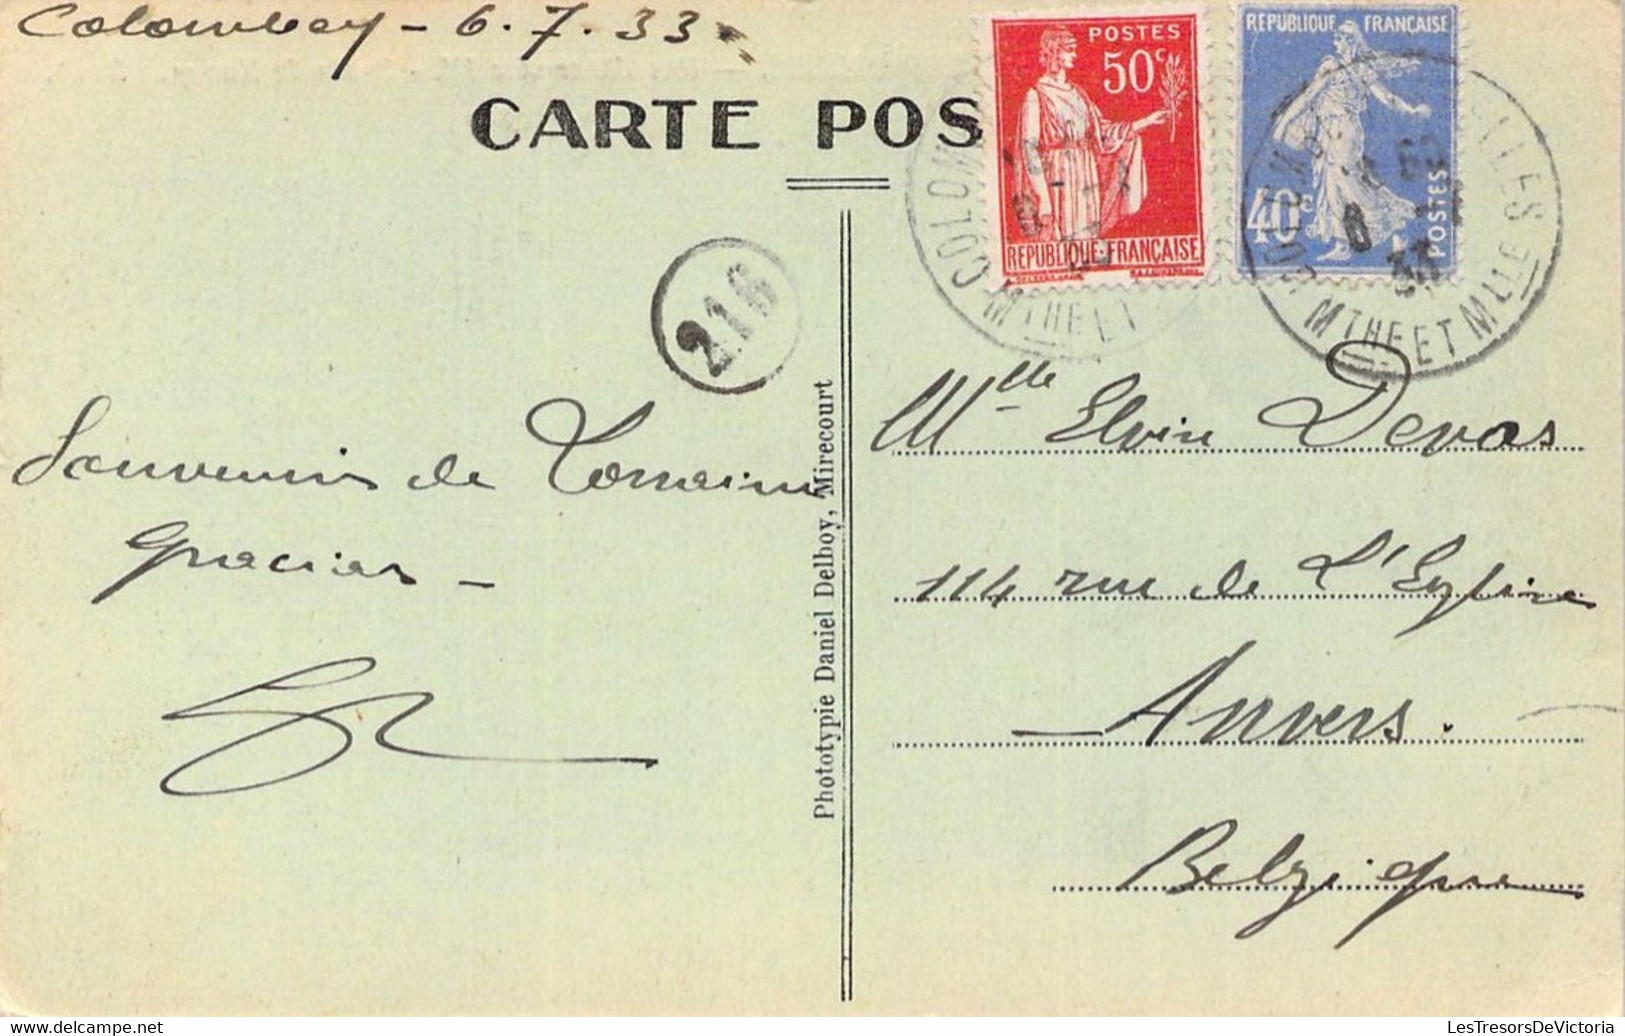 Colombey - 6.7.33
CARTE POS
POSTES
50c
REPUBLIQUE FRANÇAISE
REPUBLIQUE FRANÇAISE
40c
POSTES
COLOM
MTHE ET
COLOMBE
ELLES
MTHE ET MLLE
6 -7
33
216
Souvenir de Lorraine
Gracias -
Phototypie Daniel Delboy, Mirecourt
Mlle Elvire Devos
114 rue de L'Eglise
Anvers.
Belgique
LesTresorsDeVictoria